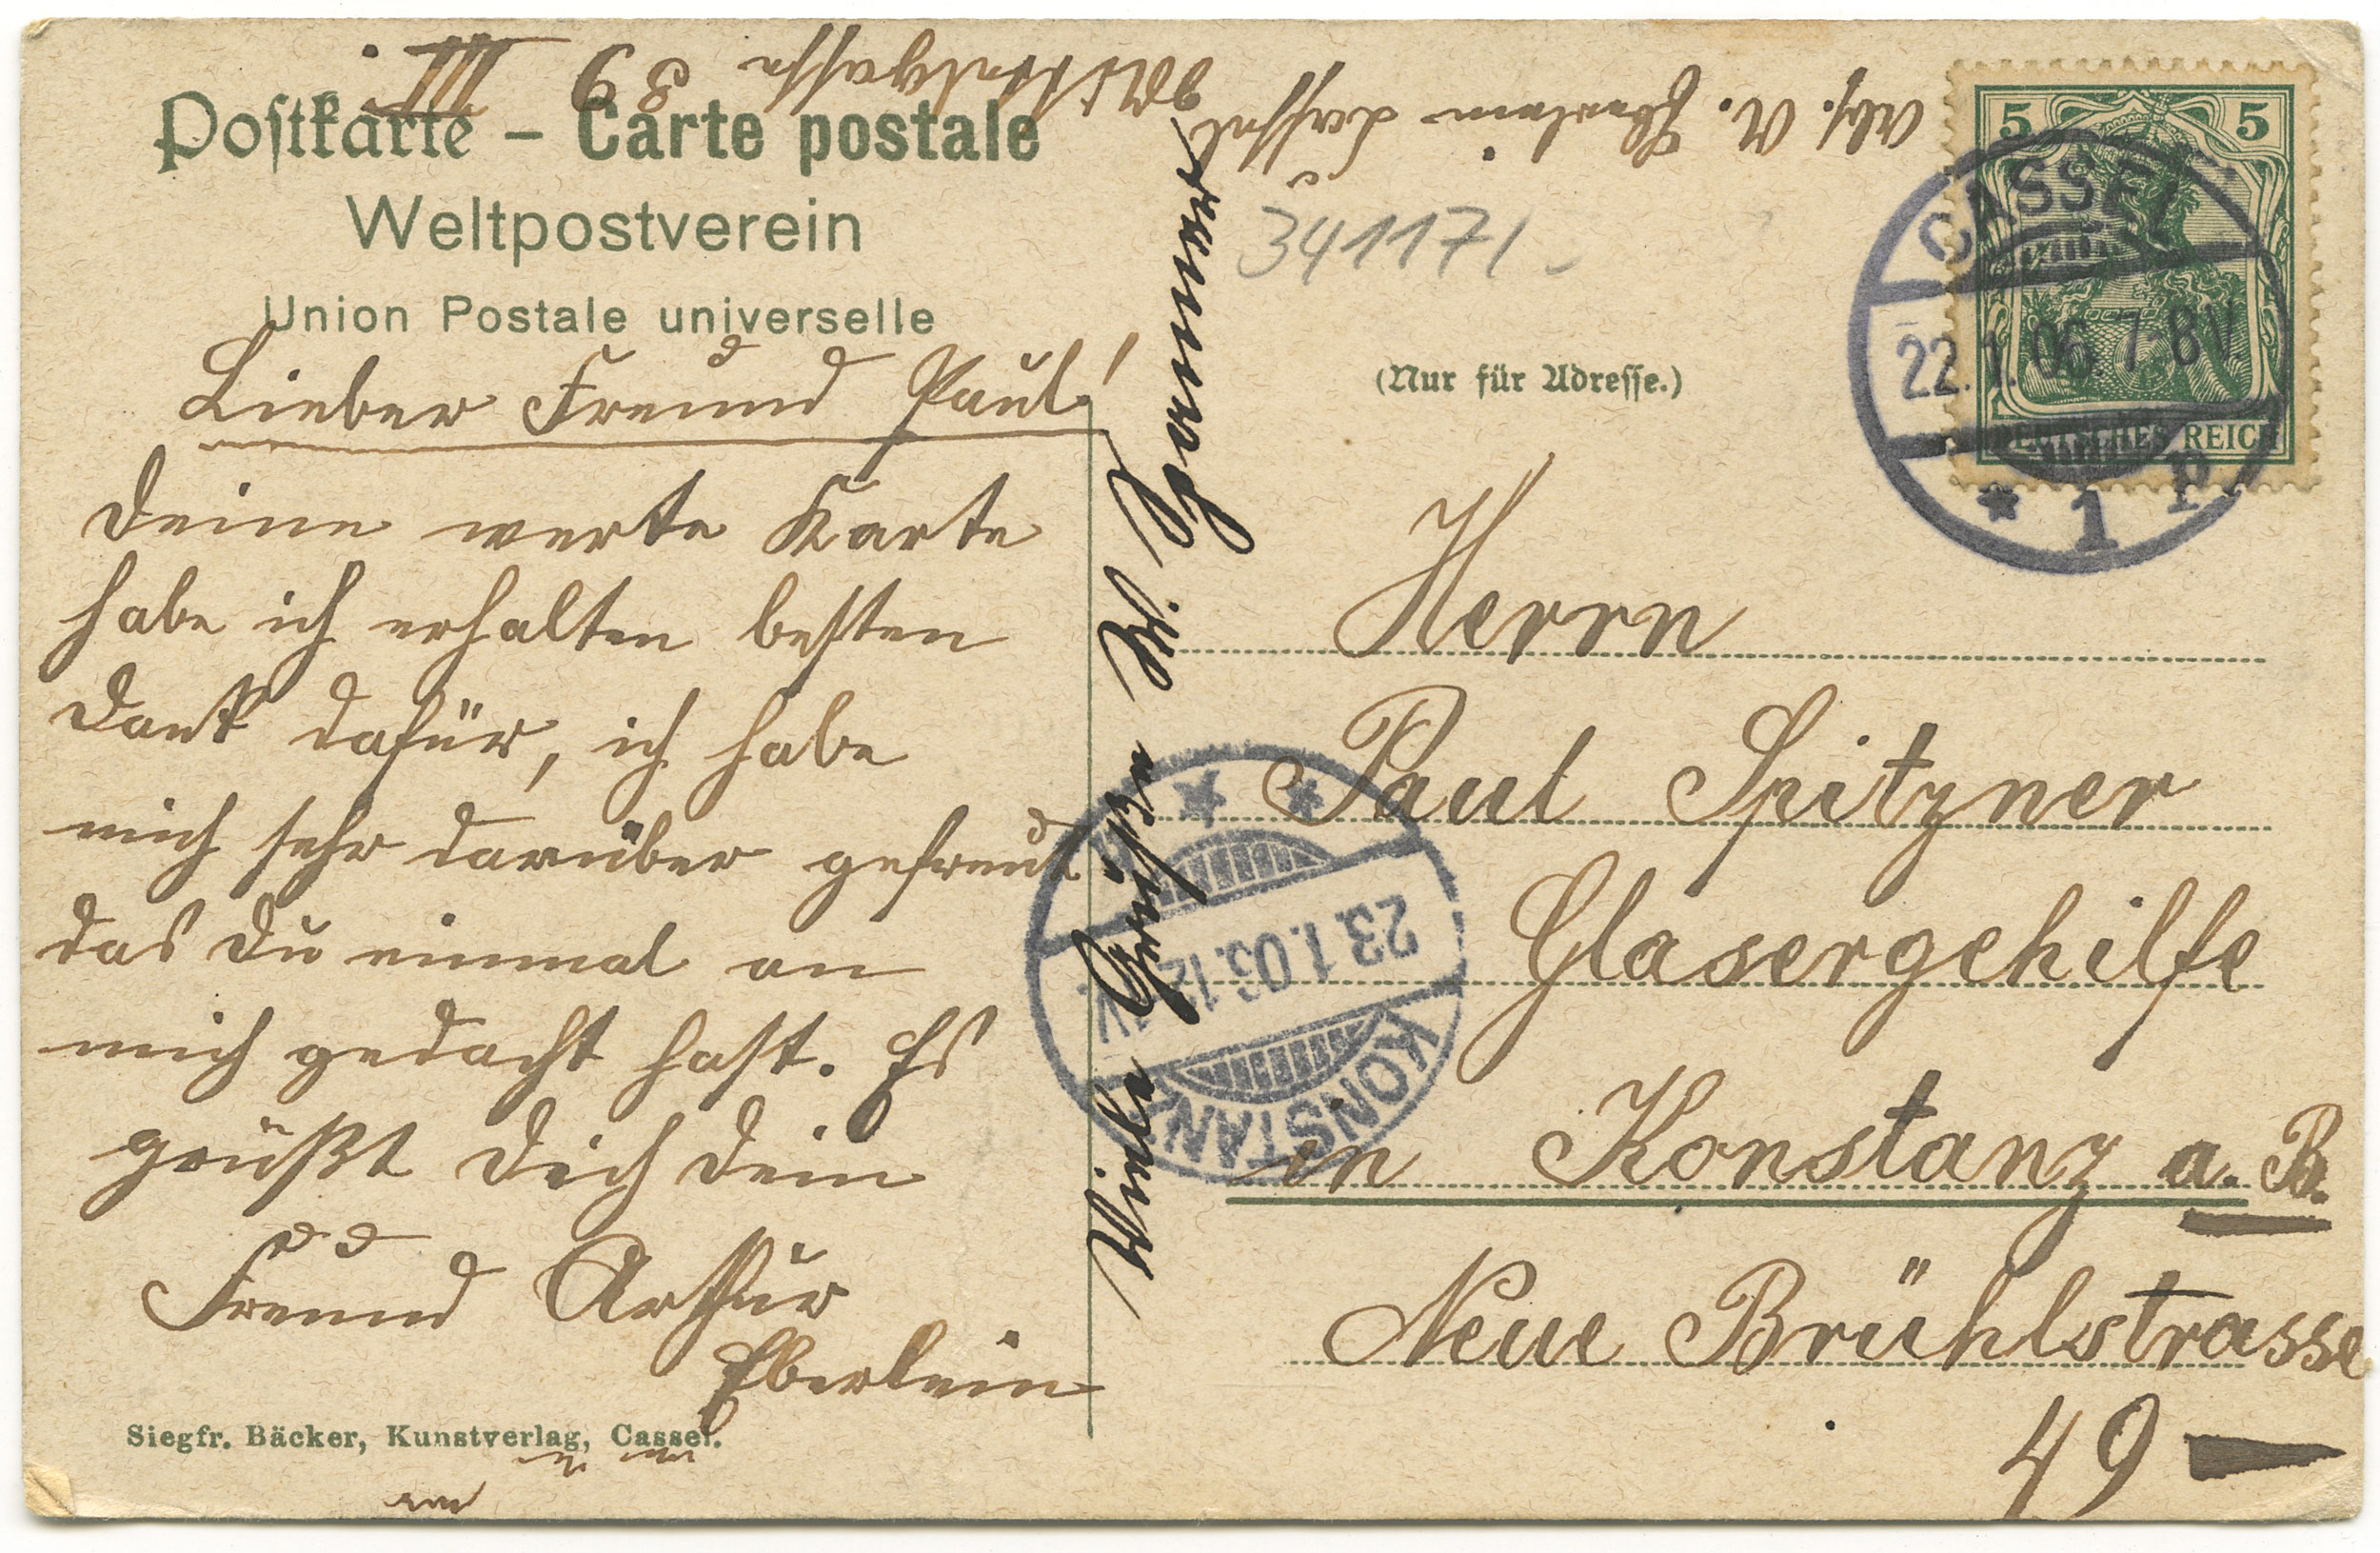 Postkarte – Carte postale
Weltpostverein
Union Postale universelle
Lieber Freund Paul!
Deine werte Karte
habe ich erhalten besten
Dank dafür, ich habe
mich sehr darüber gefreut
das Du einmal an
mich gedacht hast. Es
grüßt Dich Dein
Freund Arthur
Eberlein
Siegfr. Bäcker, Kunstverlag, Cassel.
Viele Grüße W. Sommer
Abs. A. Eberlein Cassel
39 III.
341171
5 5
DEUTSCHES REICH
CASSEL
22.1.06.7-8V
* 1
(Nur für Adresse.)
Herrn
Paul Spitzner
Glasergehilfe
in Konstanz a. B.
Neue Brühlstrasse
49
KONSTANZ
23.1.06.12